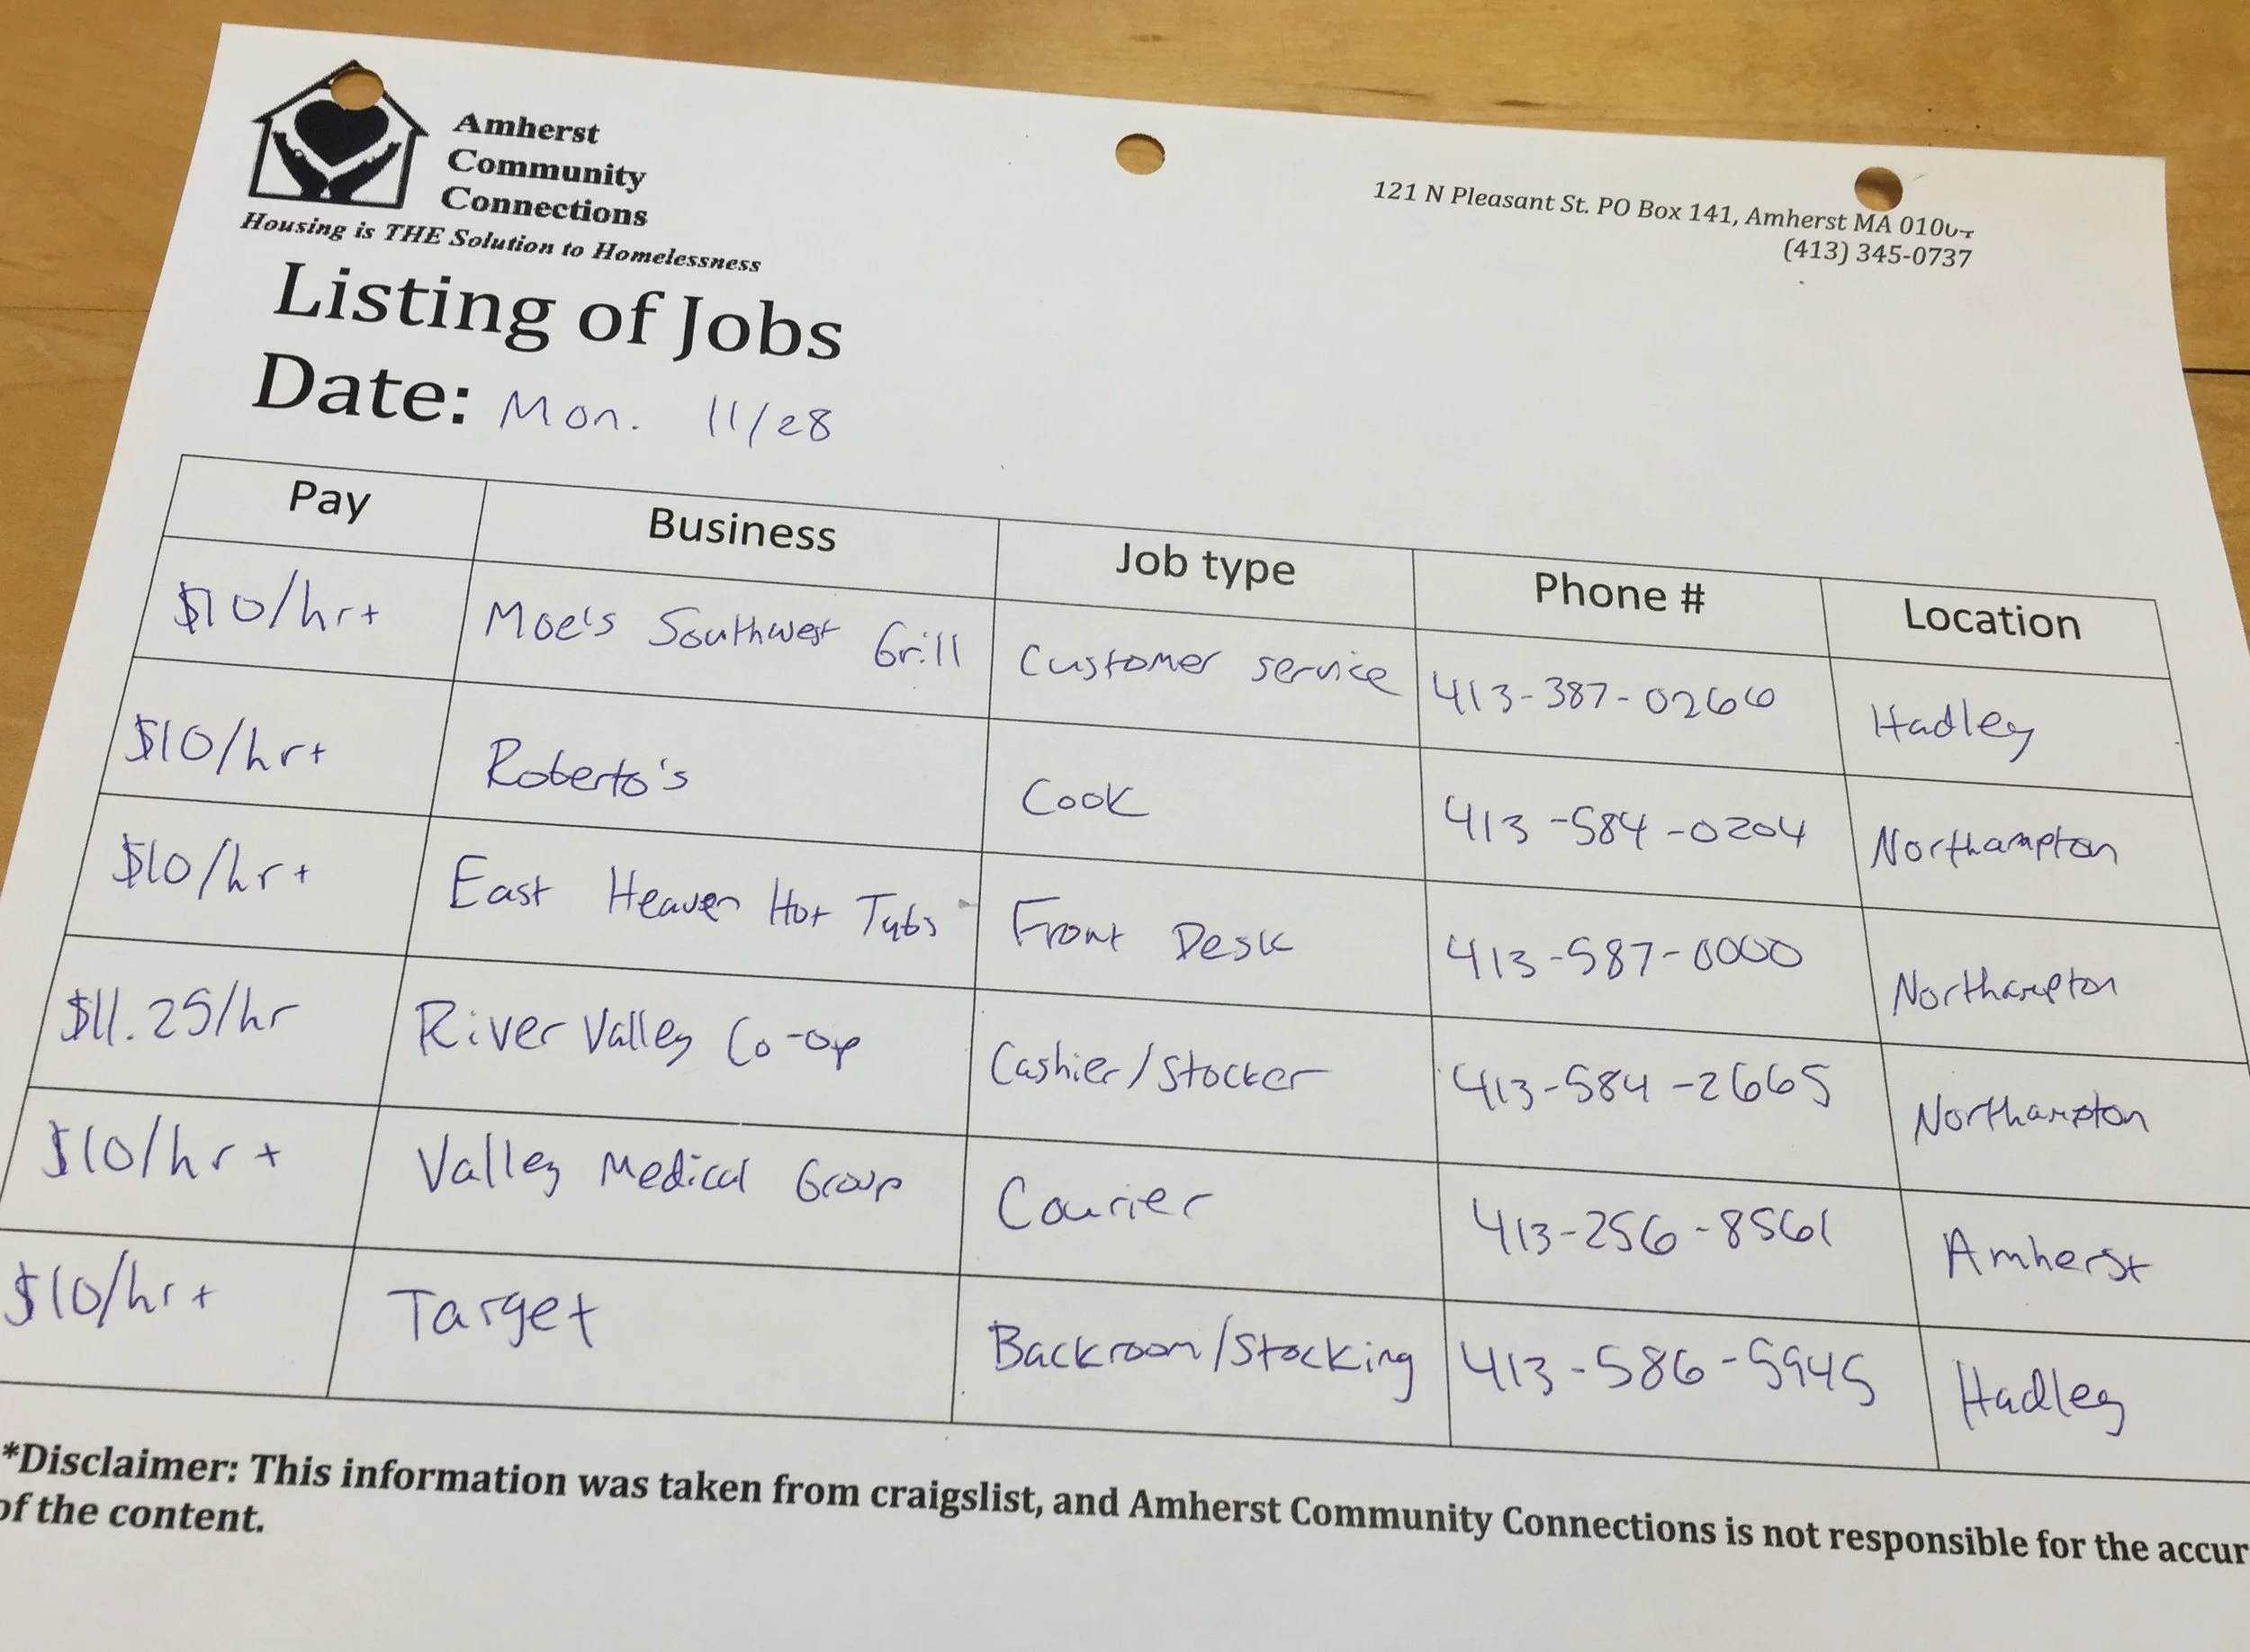 Amherst
Community
Connections
Housing is THE Solution to Homelessness
121 N Pleasant St. PO Box 141, Amherst MA
(413) 345-0737
Listing of Jobs
Date: Mon. 11/28
Pay Business Job type Phone # Location
$10/hr+ Moe's Southwest Grill Customer service 413-387-0266 Hadley
$10/hr+ Roberto's Cook 413-584-0204 Northampton
$10/hr+ East Heaven Hot Tubs Front Desk 413-587-0000 Northampton
$11.25/hr River Valley Co-op Cashier/Stocker 413-584-2665 Northampton
$10/hr+ Valley Medical Group Courier 413-256-8561 Amherst
$10/hr+ Target Backroom/Stocking 413-586-5945 Hadley
*Disclaimer: This information was taken from craigslist, and Amherst Community Connections is not responsible for the accur
of the content.